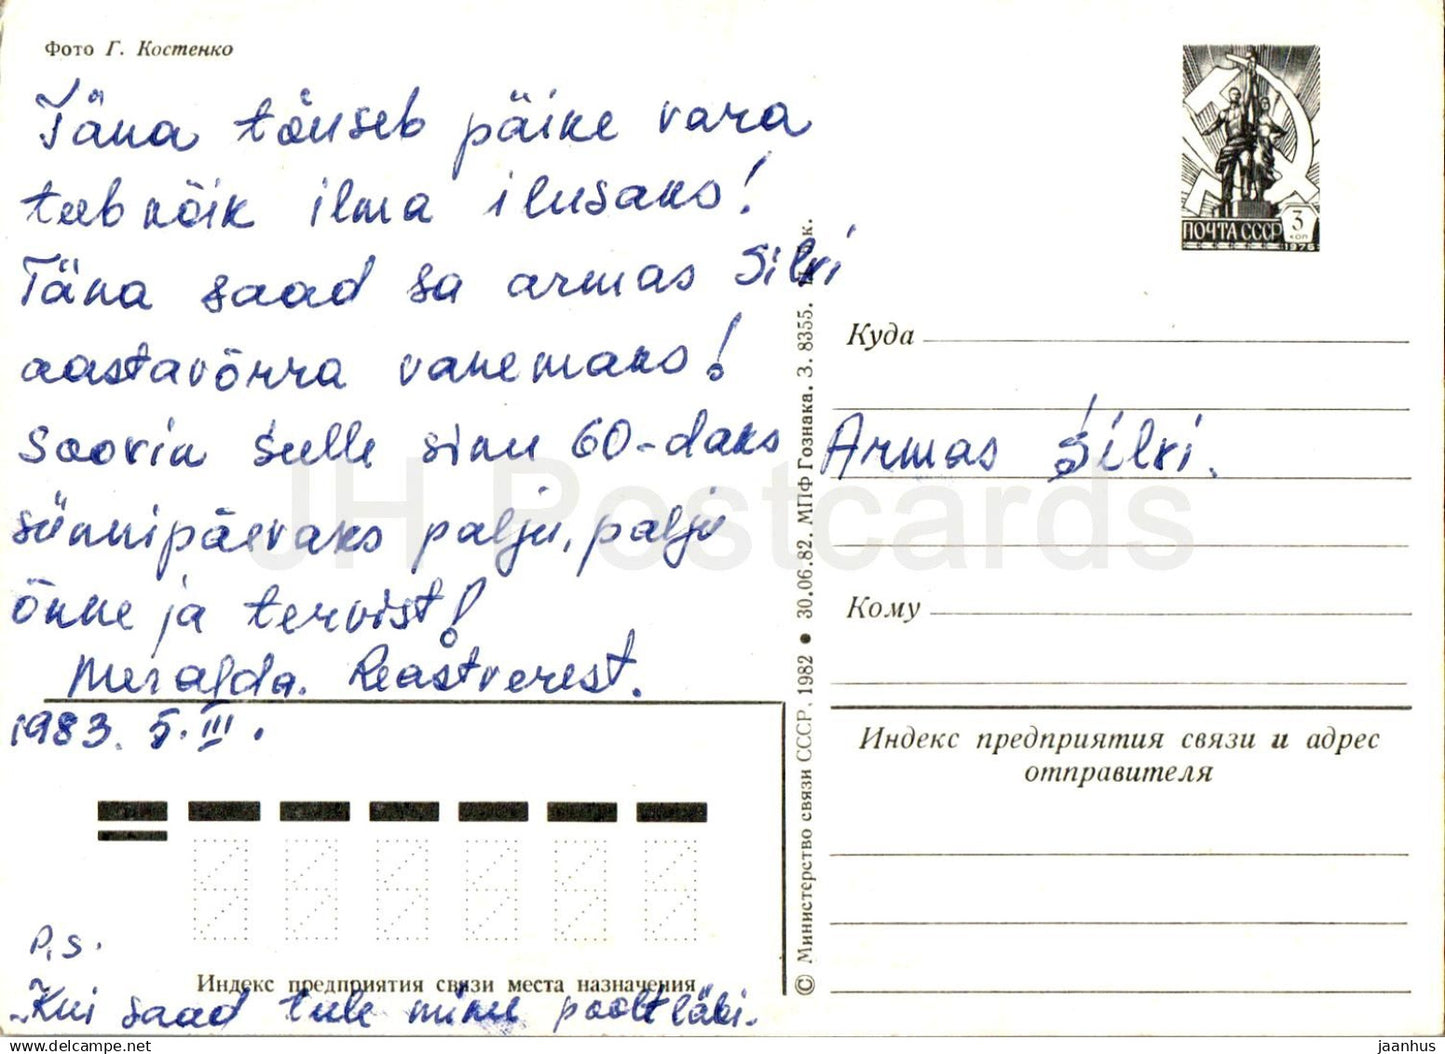 Фото Г. Костенко
Täna tõuseb päike vara
teeb kõik ilma ilusaks!
Täna saad sa armas Silvi
aastavõrra vanemaks!
Soovin sulle sinu 60-daks
sünnipäevaks palju, palju
õnne ja tervist!
Meralda. Reastverest.
1983. 5. III.
P.S.
Kui saad tule minu pooltläbi.
Индекс предприятия связи места назначения
© Министерство связи СССР. 1982 • 30.06.82. МПФ Гознака. З. 8355. к.
ПОЧТА СССР 3 коп
1976
Куда
Armas Silvi.
Кому
Индекс предприятия связи и адрес
отправителя
JH Postcards
jaanhus @ delcampe.net